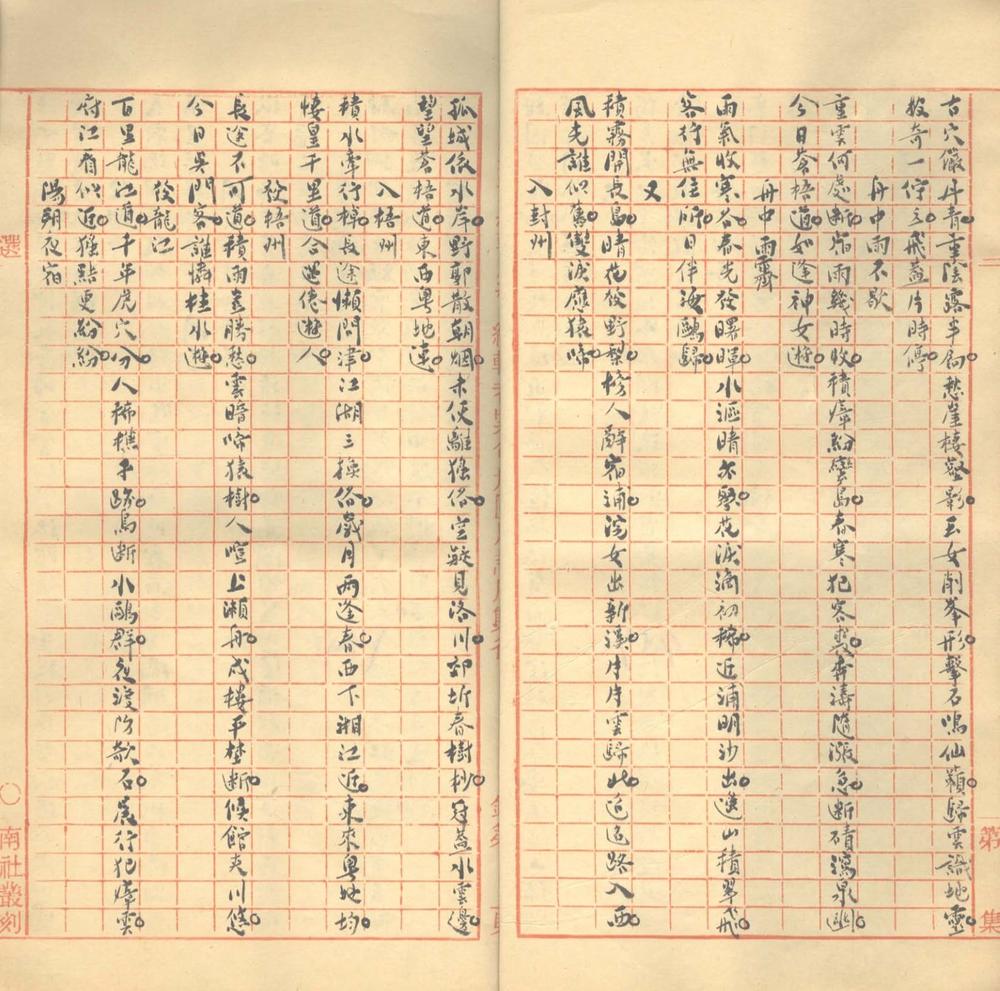 古穴儼丹青。重陰露半扃。愁崖棲壑影。玉女削峯形。擊石鳴仙籟。歸雲識地靈。
投奇一佇立。飛蓋片時停。
舟中雨不歇
重雲何處斷。宿雨幾時收。積瘴紛蠻島。春寒犯客裘。奔濤隨漲急。斷磧瀉泉幽。
今日蒼梧道。如逢神女遊。
舟中雨霽
雨氣收寒谷。春光發曙暉。水漚晴不聚。花淚滴初稀。近浦明沙出。遙山積翠飛。
客行無住所。日伴海鷗歸。
又
積霧開長島。晴花發野磎。榜人辭宿浦。浣女出新溪。片片雲歸北。迢迢路入西。
風光誰似舊。雙淚應猿啼。
入封州
孤城依水岸。野郭散朝烟。未便離猺俗。空疑見洛川。郊圻春樹杪。冠蓋水雲邊。
望望蒼梧道。東西粤地連。
入梧州
積水牽行棹。長途懶問津。江湖三換俗。歲月兩逢春。西下湘江近。東來粤地均。
悽皇千里道。今逝倦遊人。
發梧州
長途不可道。積雨並勝愁。雲暗啼猿樹。人喧上瀨舟。戍樓平楚斷。候館夾川悠。
今日吳門客。誰憐桂水遊。
發龍江
百里龍江道。千年虎穴分。人稀樵子跡。鳥斷水鷗群。夜渡防欹石。晨行犯瘴雲。
府江看似近。猺點更紛紛。
陽朔夜宿
第 集
選 〇 南社叢刻